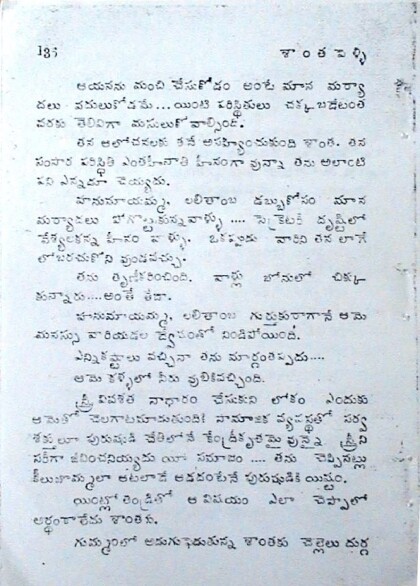 136 శాంత పెళ్ళి
ఆయనను మంచి చేసుకోడం అంటే మాన మర్యా
దలు వదులుకోడమే... యింటి పరిస్థితులు చక్కబడేటంత
వరకు తెలివిగా మసులుకోవాల్సింది.
తన ఆలోచనలకు తనే అసహ్యించుకుంది శాంత. తన
సంసార పరిస్థితి ఎంతహీనాతి హీనంగా వున్నా తను అలాంటి
పని ఎన్నడూ చెయ్యదు.
హనుమాయమ్మ, లలితాంబ డబ్బుకోసం మాన
మర్యాదలు పోగొట్టుకున్నవాళ్ళు .... సెక్రెటరీ దృష్టిలో
వేశ్యలకన్న హీనం వాళ్ళు. ఒకప్పుడు వారిని తన లాగే
లోబరచుకొని వుండవచ్చు.
తను తృణీకరించింది. వాళ్లు బోనులో చిక్కు
కున్నారు....అంతే తేడా.
హనుమాయమ్మ, లలితాంబ గుర్తుకురాగానే ఆమె
మనస్సు వారియెడల ద్వేషంతో నిండిపోయింది.
ఎన్నికష్టాలు వచ్చినా తను మార్గంతప్పదు....
ఆమె కళ్ళలో నీరు వుబికివచ్చింది.
స్త్రీ వివశత నాధారం చేసుకుని లోకం ఎందుకు
ఆమెతో చెలగాటమాడుతుంది? సామాజిక వ్యవస్థలో సర్వ
శక్తులూ పురుషుడి చేతిలోనే కేంద్రీకృతమై వున్నై స్త్రీని
సరిగా జీవించనియ్యదు యీ సమాజం .... తను చెప్పినట్లు
కీలుబొమ్మలా ఆటలాడే ఆడదంటేనే పురుషుడికి యిష్టం.
యింట్లో తండ్రితో ఆ విషయం ఎలా చెప్పాలో
అర్థంకాలేదు శాంతకు.
గుమ్మంలో అడుగుపెడుతున్న శాంతకు చెల్లెలు దుర్గ